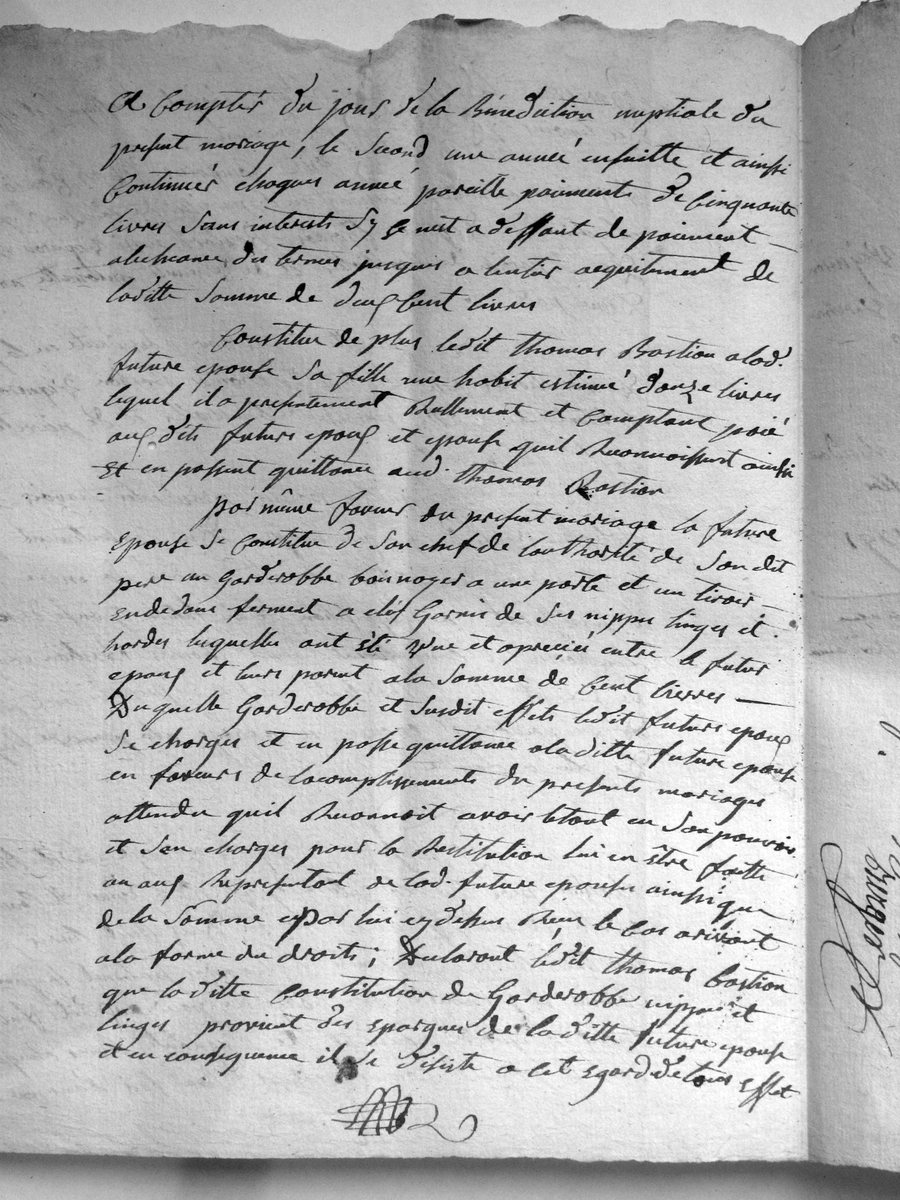 A Compter du jour de la Bénédiction nuptiale du
present mariage, le second une anneé ensuitte et ainsi
Continuér chaques anneé pareille paiements de Cinquante
livres Sans interets Sy Ce nest a deffaut de paiement
alecheance des termes jusques a lentier acquitement de
laditte Somme de deux Cent livres
Constitue de plus ledit thomas Bastion alad.
future epouse Sa fille une habit estimeé douze livres
lequel il a presentement Reellement et Comptant paié
aux dits futurs epoux et epouse quil Reconnoissent ainsi
Et en passent quittance aud. thomas Bastion
par même faveur du present mariage la future
Epouse Se Constitue de Son chef de lauthorité de Son dit
pere un Garderobbe bois noyer a une porte et un tiroir
Endedans ferment a clef Garnis de Ses nippes linges et
hardes lesquelle ont été vue et apreciés entre le futur
epoux et leurs parent ala Somme de Cent livres
Duquelle Garderobbe et Susdit effets ledit futurs epoux
Se charges et en passe quittance ala ditte future epouse
en faveurs de lacomplissements du presents mariages
attendu quil Reconnoit avoir letout en Son pouvoir
et Sen charges pour la Restitution lui en être faitte
ou aux Representant de lad. future epouse ainsi que
de la Somme par lui cy dessus Reçue le Cas arrivant
ala forme du droits; Declarant ledit thomas bastion
que la ditte Constitution de Garderobbe nippes et
linges provient des Epargnes de la ditte future epouse
et en consequence il Se desiste a cet Egard de tous Effet